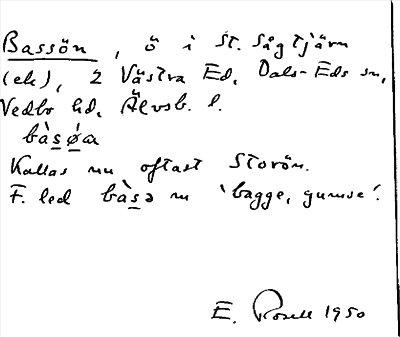 Bassön, ö i St. Sågtjärn
(ek), 2 Västra Ed, Dals-Eds sn,
Vedbo hd, Älvsb. l.
bàsø̀a
Kallas nu oftast Storön.
F. led bàsə m 'bagge, gumse'.
E. Rosell 1950